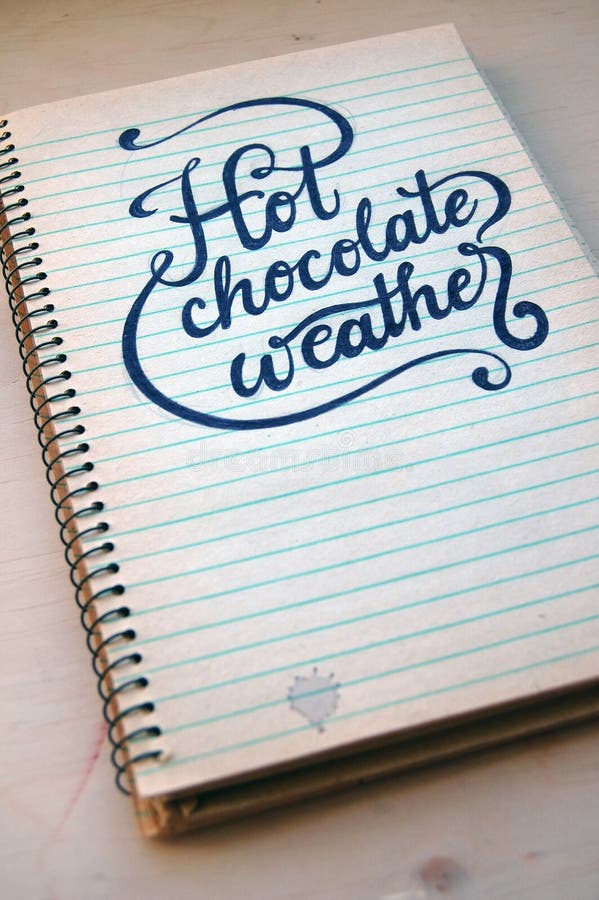 Hot
chocolate
weather
dreamstime.